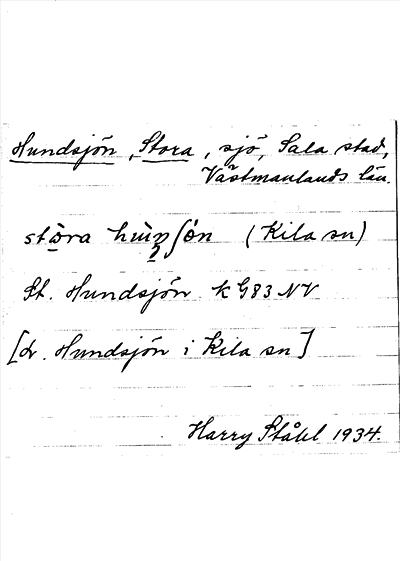 Hundsjön, Stora, sjö, Sala stad,
Västmanlands län.
stora (Kila sn)
St. Hundsjön k G83 NV
[dr. Hundsjön i Kila sn]
Harry Ståhl 1934.